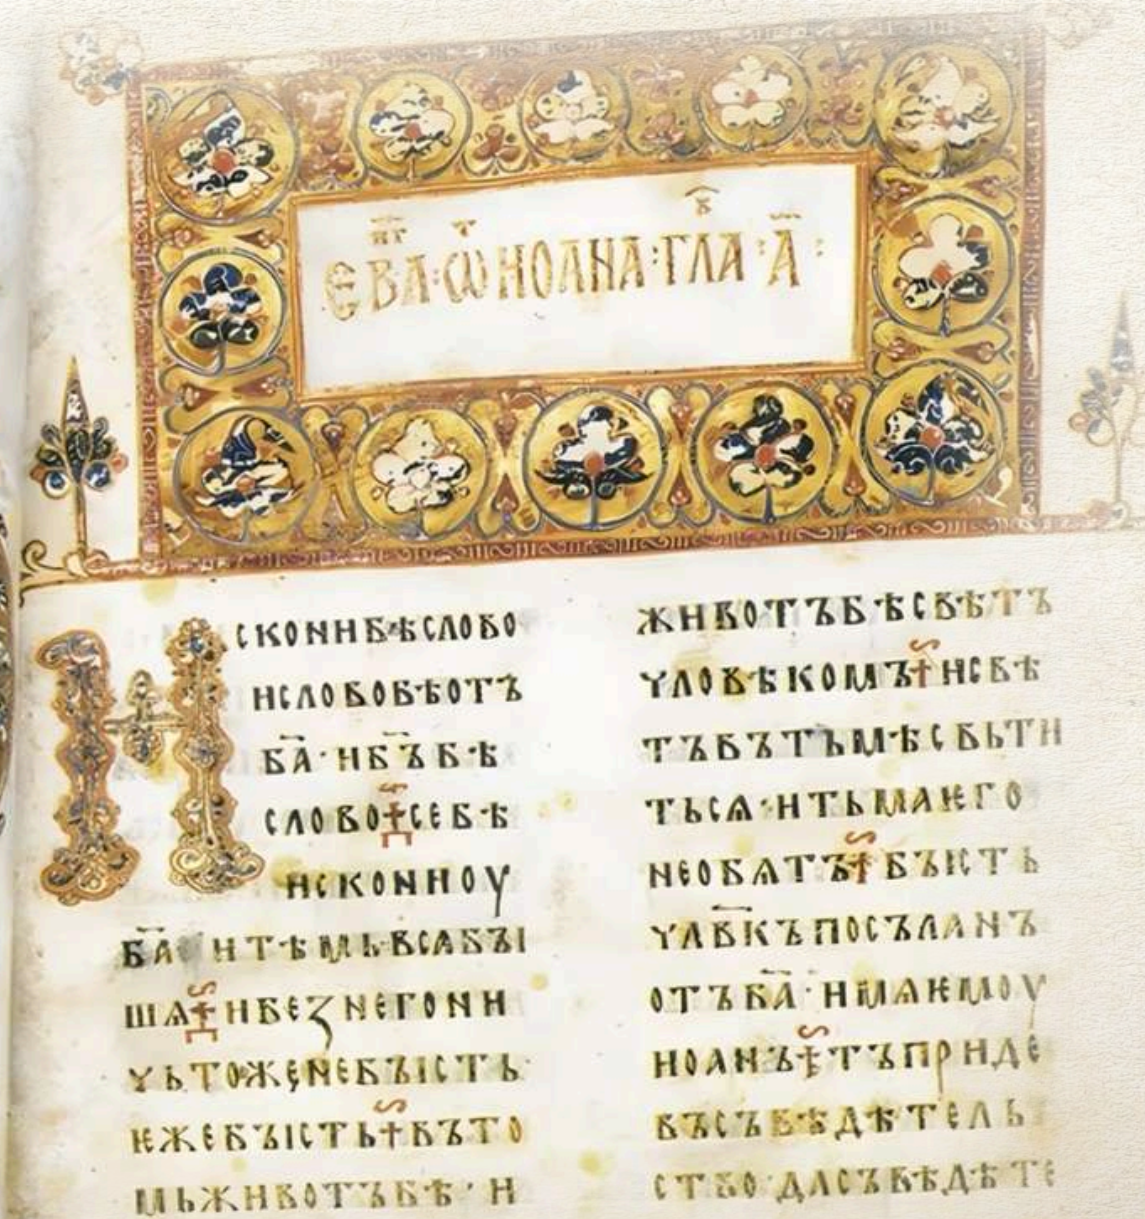 ЕВА·Ѿ ИОАНА·ГЛА·А҃·
Искони бѣ слово
и слово бѣ отъ
ба҃· и бъ҃ бѣ
слово ✝ се бѣ
искони оу
ба҃ и тѣмь вся бъı
шѧ ✝ и без него ни
чьтоже не бъıсть·
ѥже бъıсть ✝ въ то
мь животъ бѣ· и
животъ бѣ свѣтъ
чловѣкомъ ✝ и свѣ
тъ въ тьмѣ свьти
тьсѧ· и тьма ѥго
не обѧтъ ✝ бъıсть
члв҃къ посъланъ
отъ ба҃· имѧ ѥмоу
иоанъ ✝ тъ приде
въ съвѣдѣтель
ство· да съвѣдѣте